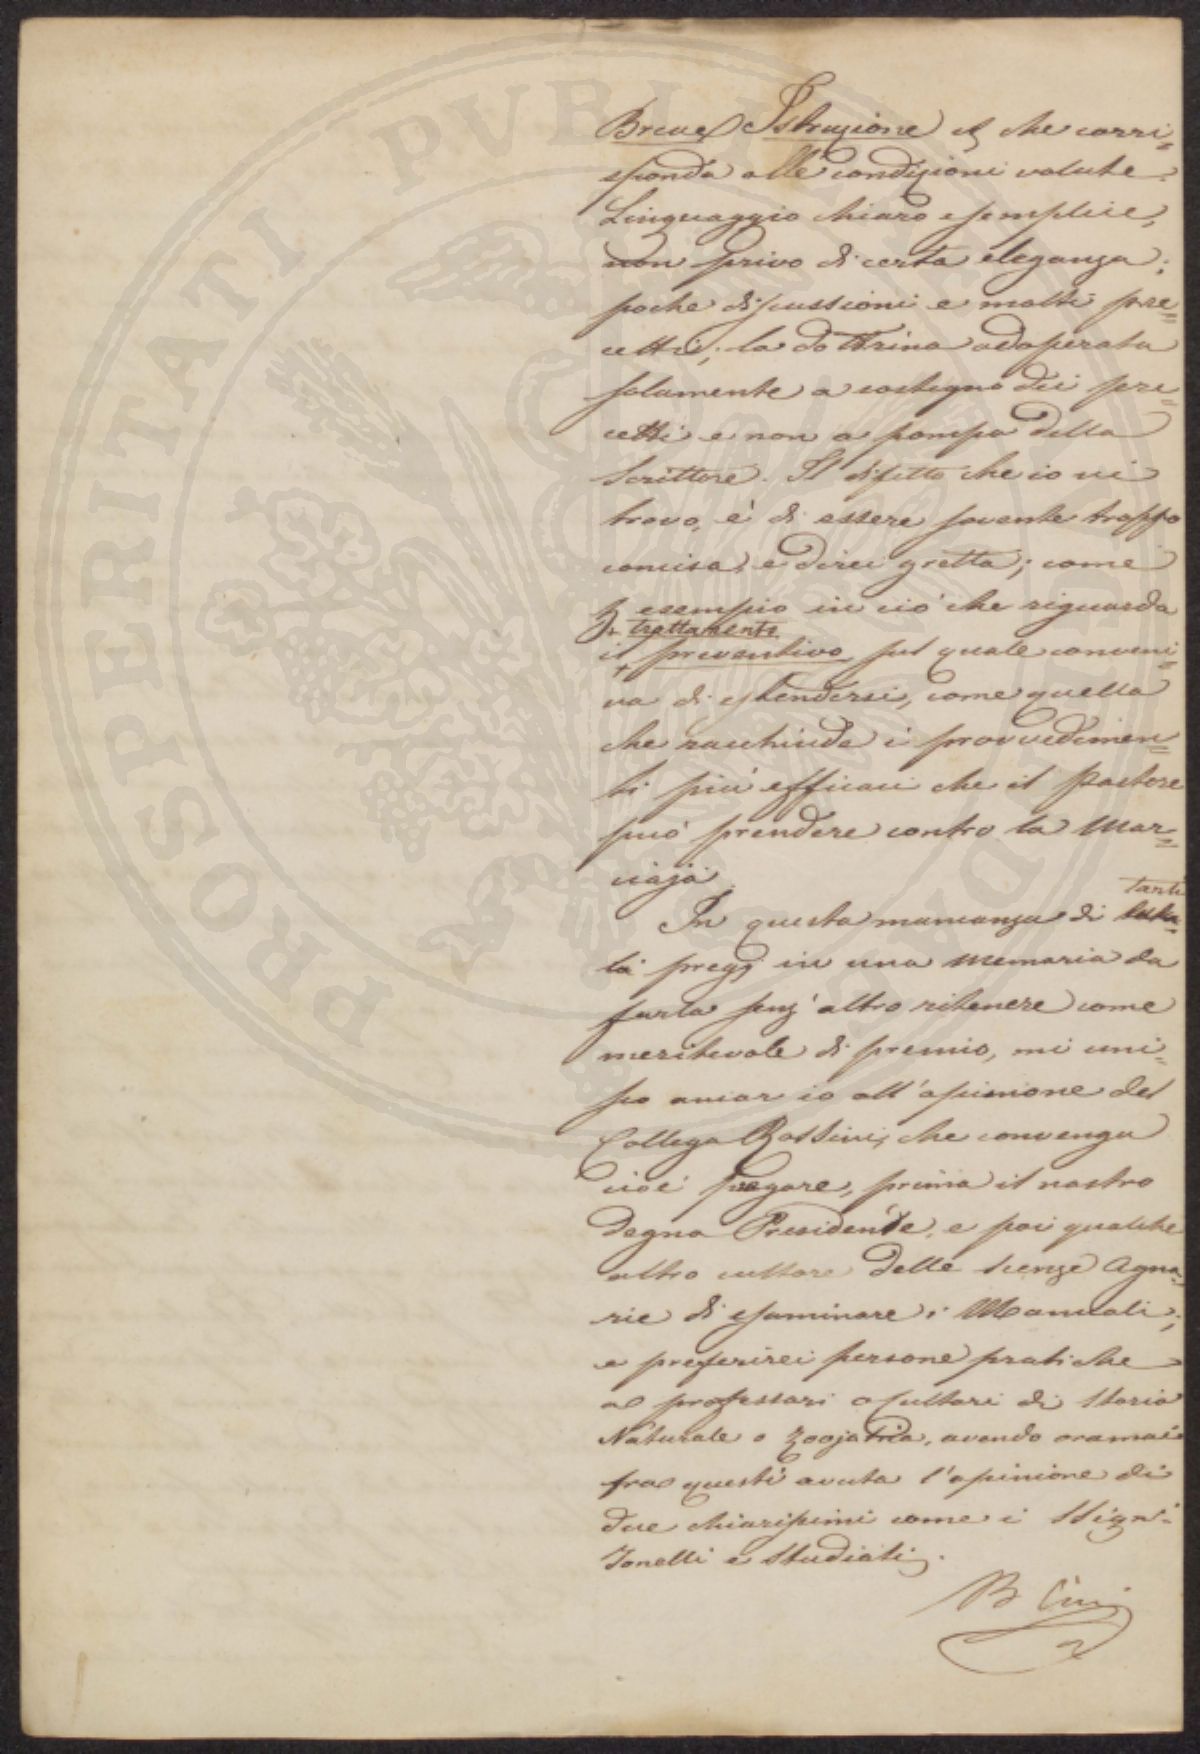 Breve Istruzione &c che corri=
sponda alle condizioni volute.
Linguaggio chiaro e semplice,
non privo di certa eleganza;
poche discussioni e molti pre=
cetti; la dottrina adoperata
solamente a sostegno dei pre=
cetti e non a pompa dello
Scrittore. Il difetto che io vi
trovo, è di essere sovente troppo
concisa, e direi gretta; come
p. esempio in ciò che riguarda
trattamento
il + preventivo, sul quale conveni=
va di estendersi, come quello
che racchiude i provvedimen=
ti più efficaci che il Pastore
può prendere contro la Mar=
ciaja.
tanti
In questa mancanza di
li pregj in una Memoria da
farla senz'altro ritenere come
meritevole di premio, mi uni=
sco ancor io all'opinione del
Collega, che convenga
cioè pregare, prima il nostro
Degno Presidente, e poi qualche
altro cultore delle Scienze Agra=
rie di esaminare i Manuali;
e preferirei persone pratiche
a professori o Cultori di Storia
Naturale o Zoojatria, avendo oramai
fra questi avuta l'opinione di
due chiarissimi come i SSigri.
Tonelli e Studiati.
B Cini
PROSPERITATI PVBLICAE